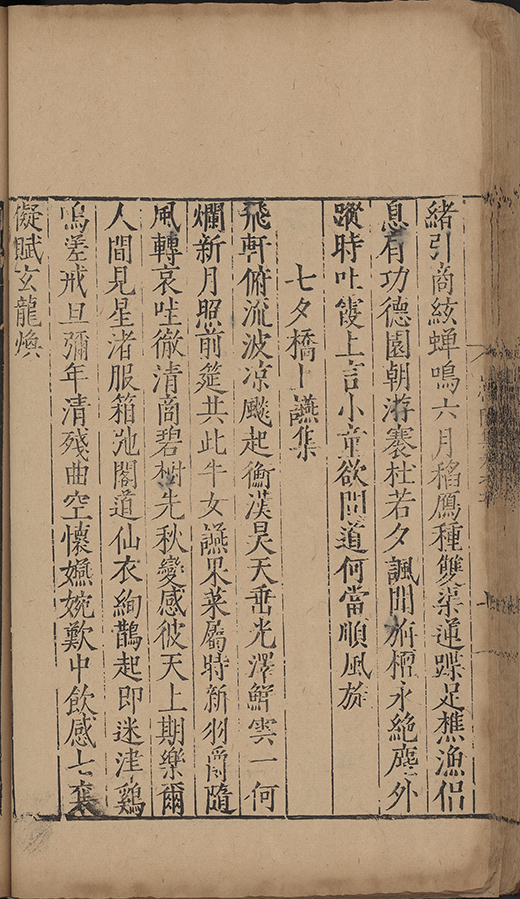 緒引商絃蟬鳴六月稻鴈種雙渠逋蹤足樵漁侶
息有功德園朝游搴杜若夕諷聞旃檀永絕塵外
蹤時吐霞上言小童欲問道何當順風旋
七夕橋上讌集
飛軒俯流波凉颷起衡漢昊天垂光澤鮮雲一何
爛新月照前筵共此牛女讌果菜屬時新羽爵隨
風轉哀吐徹清商碧樹先秋變感彼天上期樂爾
人間見星渚服箱池閣道仙衣絢鵲起即迷津鷄
鳴差戒旦彌年清殘曲空懷嬿婉歎中飲感七襄
儗賦玄龍煥